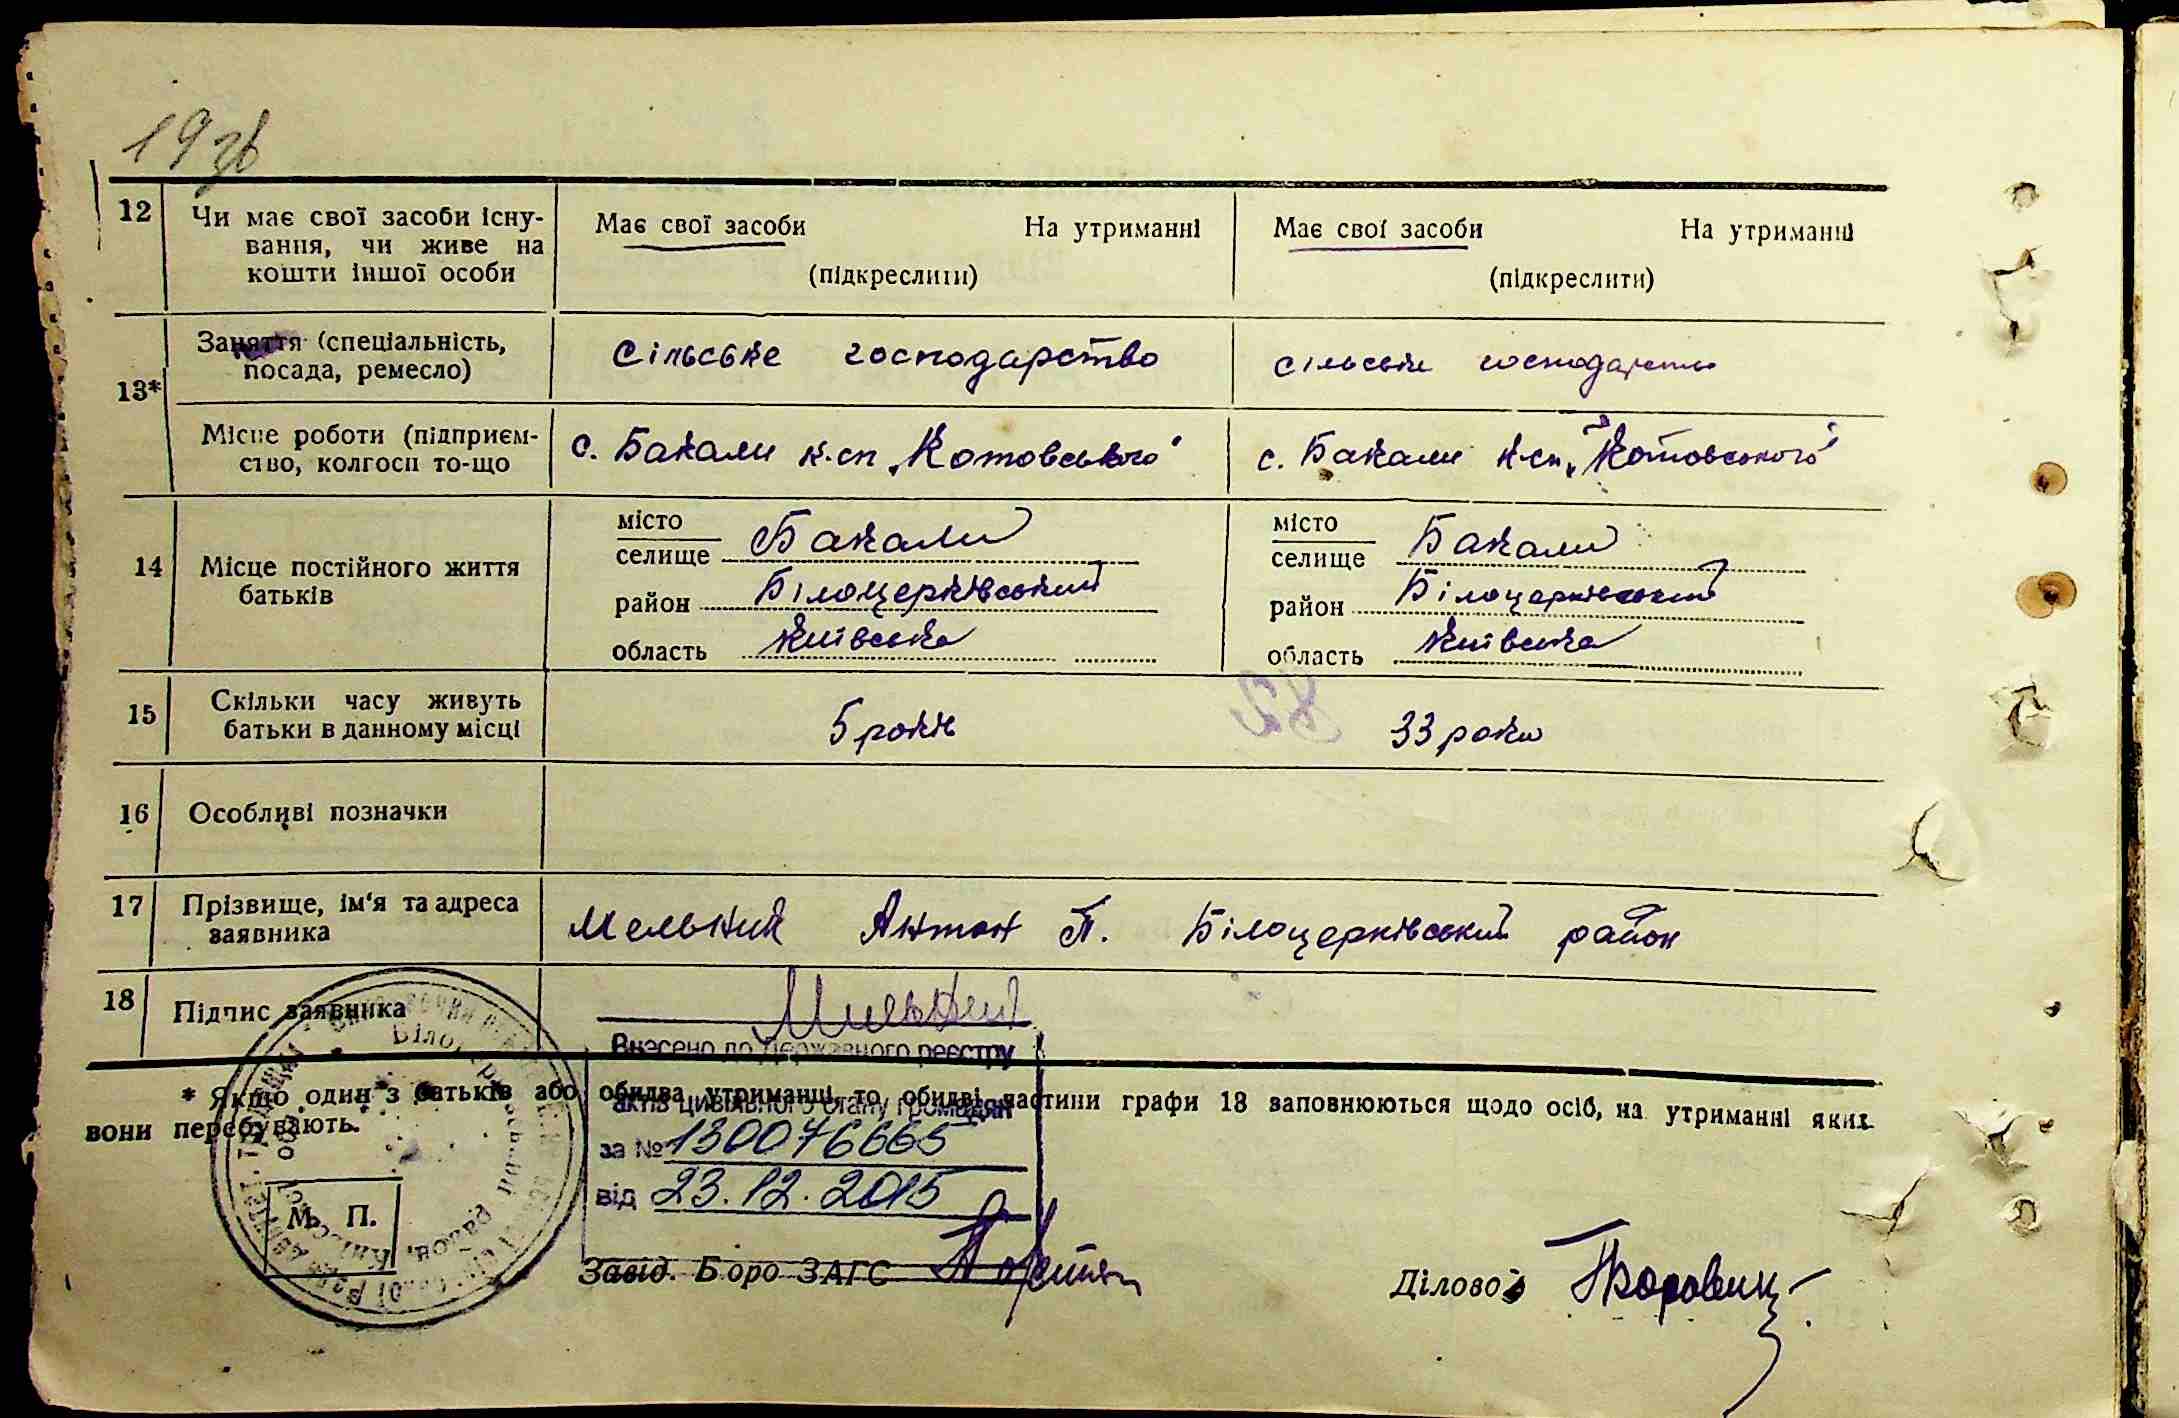 19 зв
12 Чи має свої засоби існу-
вання, чи живе на
кошти іншої особи
Має свої засоби На утриманні
(підкреслити)
Має свої засоби На утриманні
(підкреслити)
13*
Заняття (спеціальність,
посада, ремесло)
сільське господарство
сільське господарство
Місце роботи (підприєм-
ство, колгосп то-що
с. Бакали к.сп „Котовського"
с. Бакали к.сп „Котовського"
14 Місце постійного життя
батьків
місто
селище Бакали
район Білоцерківський
область Київська
місто
селище Бакали
район Білоцерківський
область Київська
15 Скільки часу живуть
батьки в данному місці
5 років
33 роки
16 Особливі позначки
17 Прізвище, ім'я та адреса
заявника
Мельник Антон П. Білоцерківський район
18 Підпис заявника
Мельник
Внесено до Державного реєстру
актів цивільного стану громадян
за № 130076665
від 23.12.2015
* Якщо один з батьків або обидва утриманці, то обидві частини графи 13 заповнюються щодо осіб, на утриманні яких
вони перебувають.
М. П.
Завід. Боро ЗАГС
Діловод